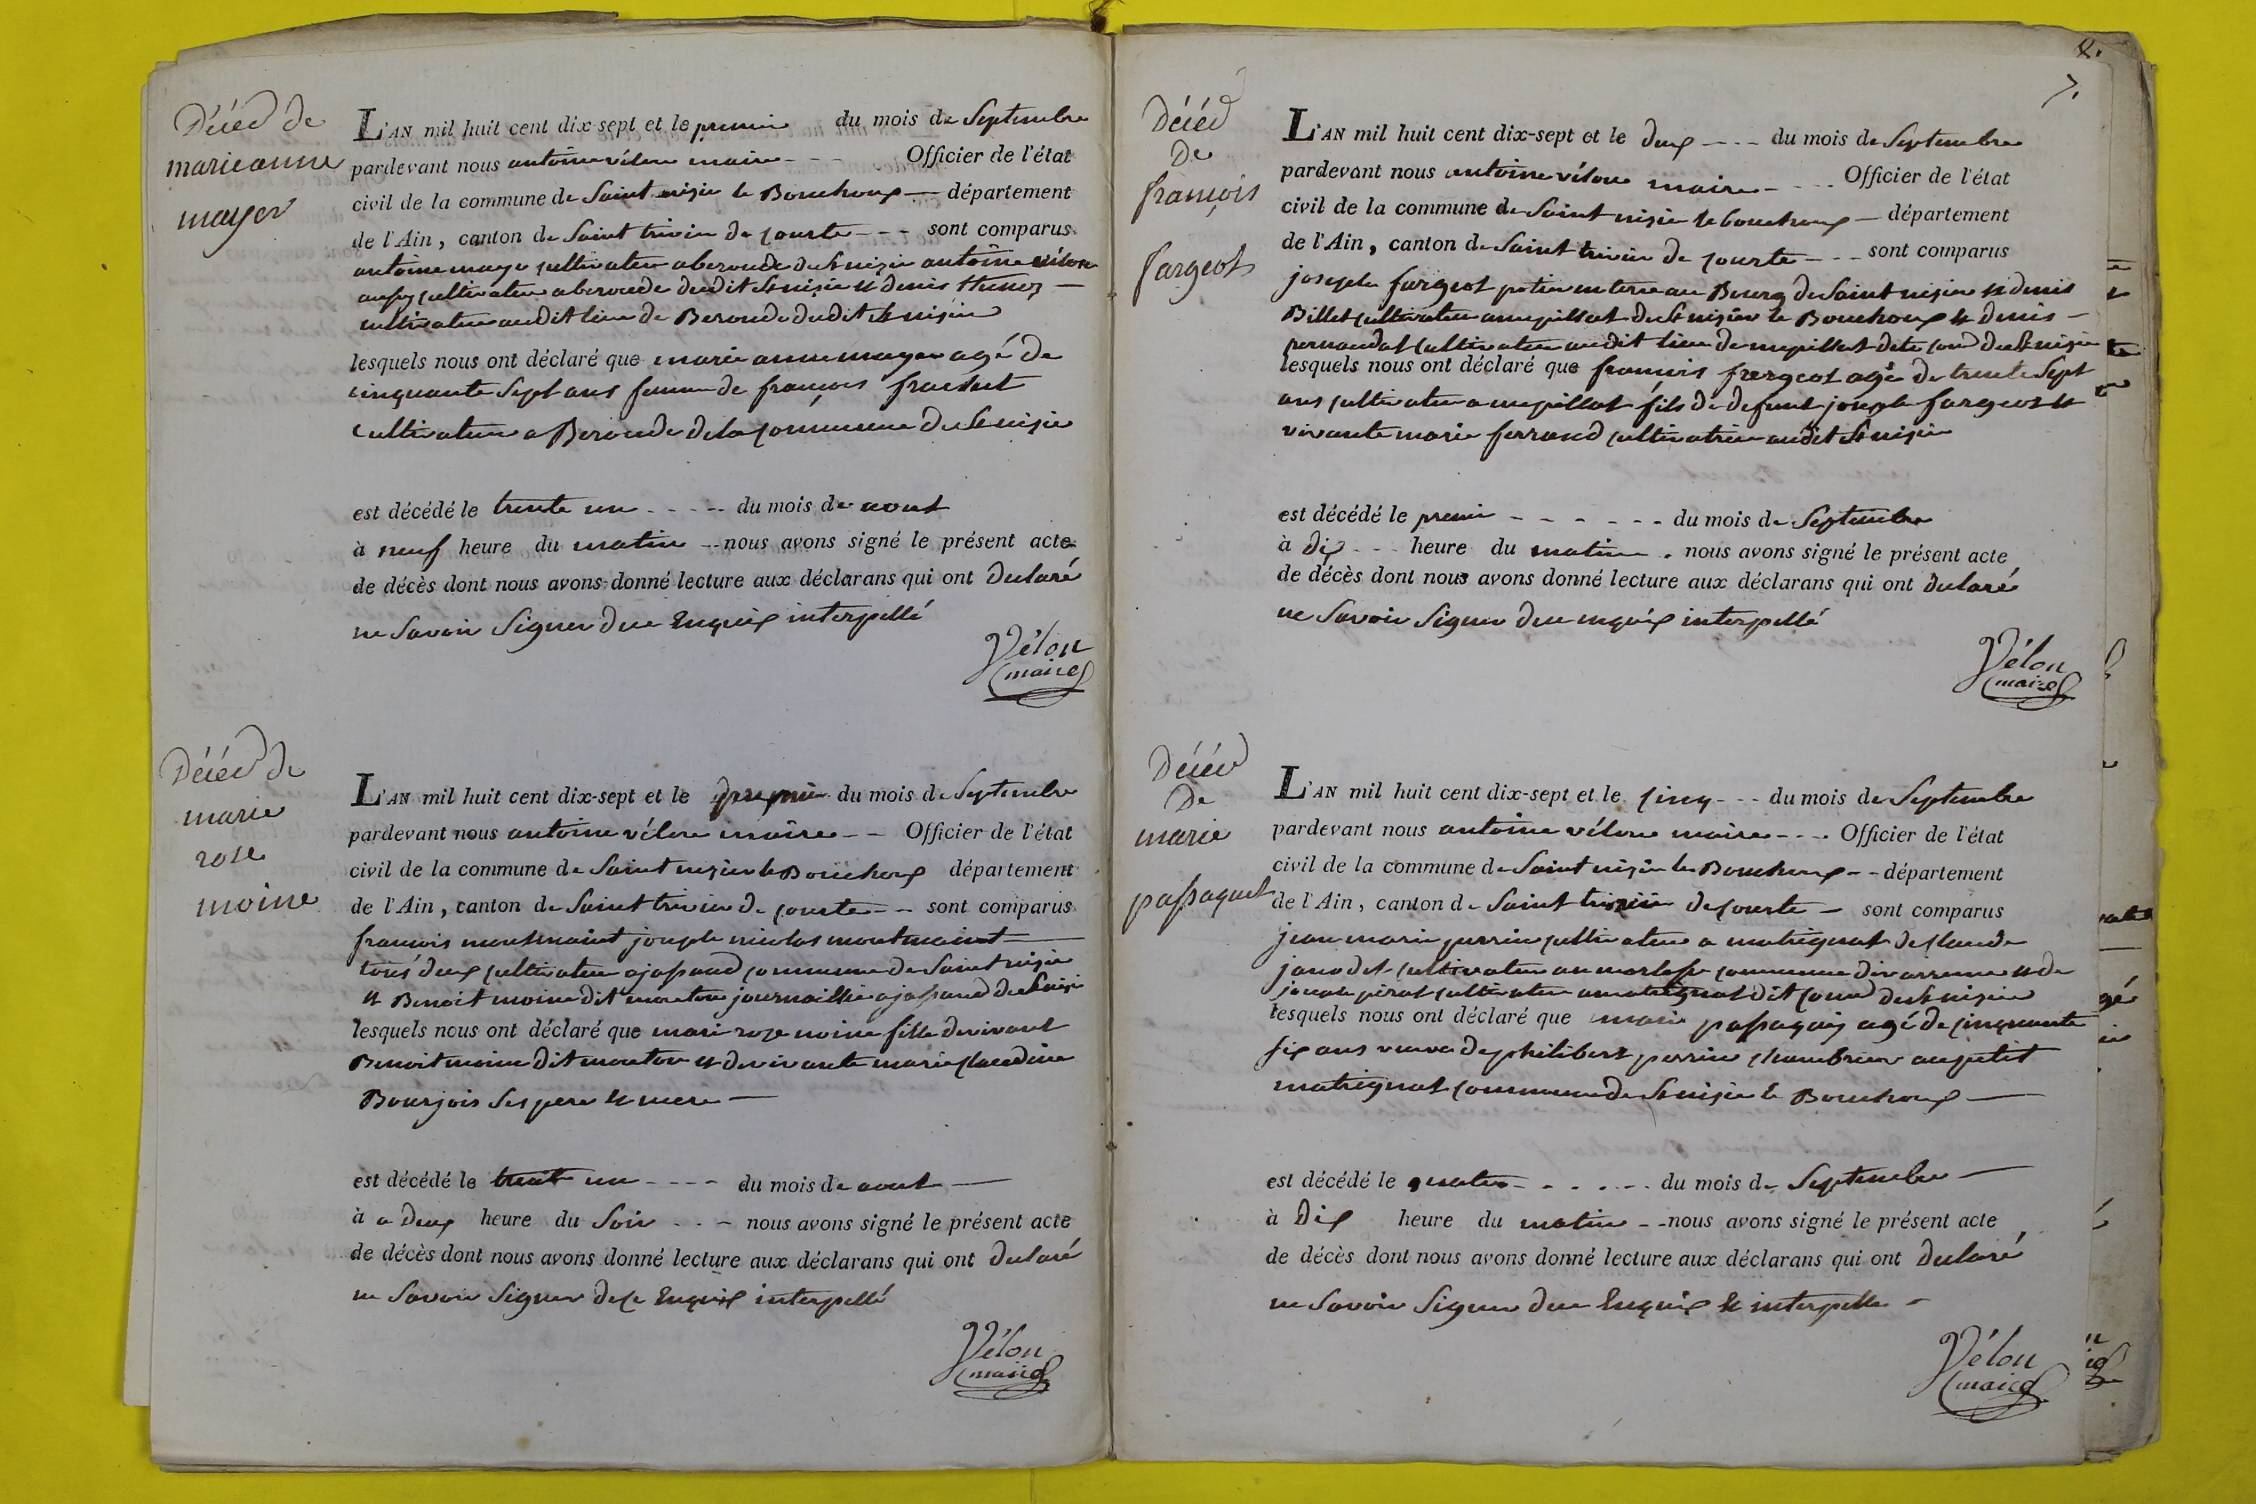 Décéd de
marieanne
mayer
L'AN mil huit cent dix-sept et le premier du mois de Septembre
pardevant nous antoine vélon maire - - - Officier de l'état
civil de la commune de Saint nisier le Bouchoux - département
de l'Ain, canton de Saint trivier de Courte - - - sont comparus
antoine mayer cultivateur a beroude de St nisier antoine vélon
aussy cultivateur a beroude dudit St nisier et denis -
cultivateur audit lieu de Beroude dudit St nisier
lesquels nous ont déclaré que marie anne mayer agé de
cinquante Sept ans femme de françois
cultivateur a Beroude de la Commune de St nisier
est décédé le trente un - - - - - du mois de aout
à neuf heure du matin - - nous avons signé le présent acte
de décès dont nous avons donné lecture aux déclarans qui ont declaré
ne Savoir Signer de ce Enquis interpellé
Vélon
maire
Décéd de
marie
rose
moine
L'AN mil huit cent dix-sept et le premier du mois de Septembre
pardevant nous antoine vélon maire - - Officier de l'état
civil de la commune de Saint nisier le Bouchoux département
de l'Ain, canton de Saint trivier de Courte - - sont comparus
francois joseph nicolas
tous deux cultivateur a jassand Commune de Saint nisier
et Benoit moine dit mouton journaillier a jassand de St nisier
lesquels nous ont déclaré que mari roze moine fille de vivant
Benoit moine dit mouton et de vivante marie Claudine
Bourjois Ses pere et mere -
est décédé le trente un - - - - du mois de aout -
à a deux heure du Soir - - - nous avons signé le présent acte
de décès dont nous avons donné lecture aux déclarans qui ont declaré
ne Savoir Signer de ce Enquis interpellé
Vélon
maire
8.
7.
Décéd
De
françois
fargeot
L'AN mil huit cent dix-sept et le deux - - - - du mois de Septembre
pardevant nous antoine vélon maire - - - - Officier de l'état
civil de la commune de Saint nisier le bouchoux - département
de l'Ain, canton de Saint trivier de Courte - - - sont comparus
joseph fargeot potier en terre au Bourg de Saint nisier et denis
Billet cultivateur a mepillat de St nisier le Bouchoux et denis -
cultivateur audit lieu de mepillat dite Comd de St nisier
lesquels nous ont déclaré que francois fregeot agé de trente Sept
ans cultivateur a mepillat fils de defunt joseph fargeot et
vivante marie ferrand cultivatrice audit St nisier
est décédé le premier - - - - - - du mois de Septembre
à dix - - - heure du matin - nous avons signé le présent acte
de décès dont nous avons donné lecture aux déclarans qui ont declaré
ne Savoir Signer de ce enquis interpellé
Vélon
maire
Décéd
De
marie
passaquet
L'AN mil huit cent dix-sept et le Cinq - - - du mois de Septembre
pardevant nous antoine vélon maire - - - - Officier de l'état
civil de la commune de Saint nisier le Bouchoux - - département
de l'Ain, canton de Saint trivier de Courte - sont comparus
jean marie perrin cultivateur a matrignat de Claude
cultivateur au Commune de varenne et de
cultivateur a matrignat dit Comd de St nisier
lesquels nous ont déclaré que marie agé de Cinquante
six ans veuve de philibert perrin au petit
matrignat Commune de St nisier le Bouchoux -
est décédé le quatre - - - - - - du mois de Septembre -
à Dix heure du matin - - nous avons signé le présent acte
de décès dont nous avons donné lecture aux déclarans qui ont declaré
ne Savoir Signer de ce Enquis et interpelle -
Vélon
maire